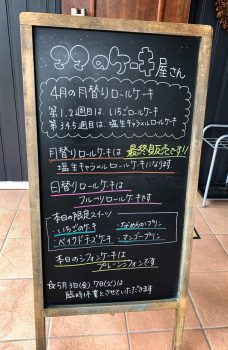 ママのケーキ屋さん
4月の月替りロールケーキ
第1.2週目は、いちごロールケーキ
第3.4.5週目は、塩生キャラメルロールケーキ
月替りロールケーキは 最終販売です!!
塩生キャラメルロールケーキになります
日替りロールケーキは
フルーツロールケーキです
本日の限定スイーツ
・いちごのケーキ ・なめらかプリン
・ベイクドチーズケーキ ・マンゴープリン
本日のシフォンケーキは
プレーンシフォンです
☆5月3日(金).7日(火)は
臨時休業とさせていただきます